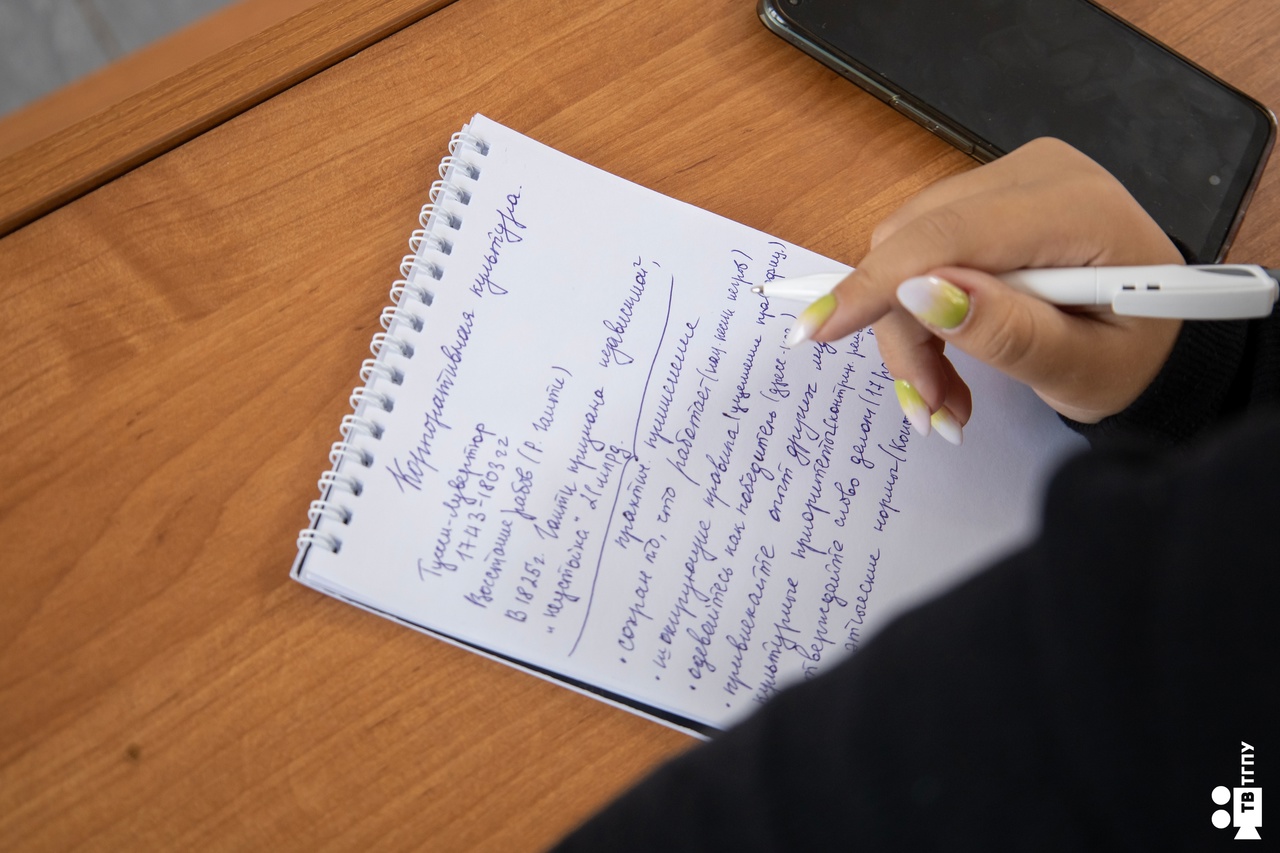 Корпоративная культура.
Туссен-Лувертюр
1743-1803 гг
Восстание рабов (Р. Гаити)
В 1825г. Гаити признана независимой,
"неустойка" 21 млрд.
практич. применение
• сохран то, что работает (нац песни негров)
• шокирующие правила (ущемлении
• одевайтесь как победитель (дресс-
• привлекайте опыт других
культурные приоритеты (контрин.
тверждайте слово делом (17
этические нормы
ТВ ТГПУ